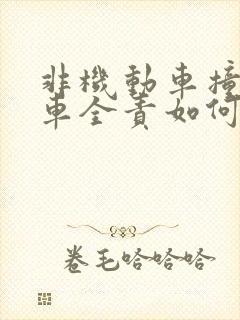 非機動車撞
車全責如何
卷毛哈哈哈